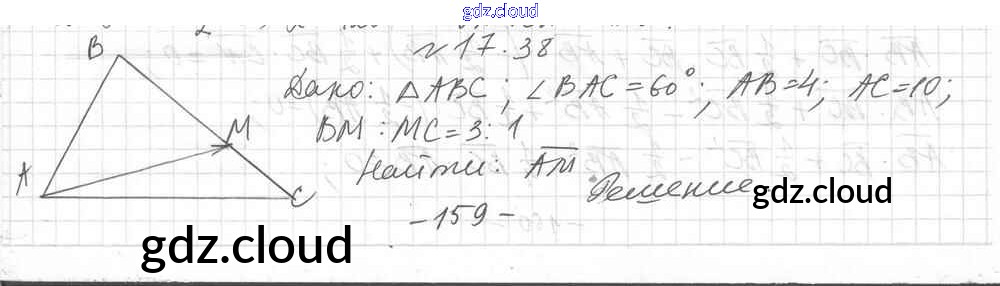 gdz.cloud
№ 17.38
B
Дано: △ABC; ∠BAC = 60°; AB=4; AC=10;
BM : MC = 3 : 1
M
Найти: \overline{AM}
A
C
Решение
gdz.cloud
-159-
gdz.cloud